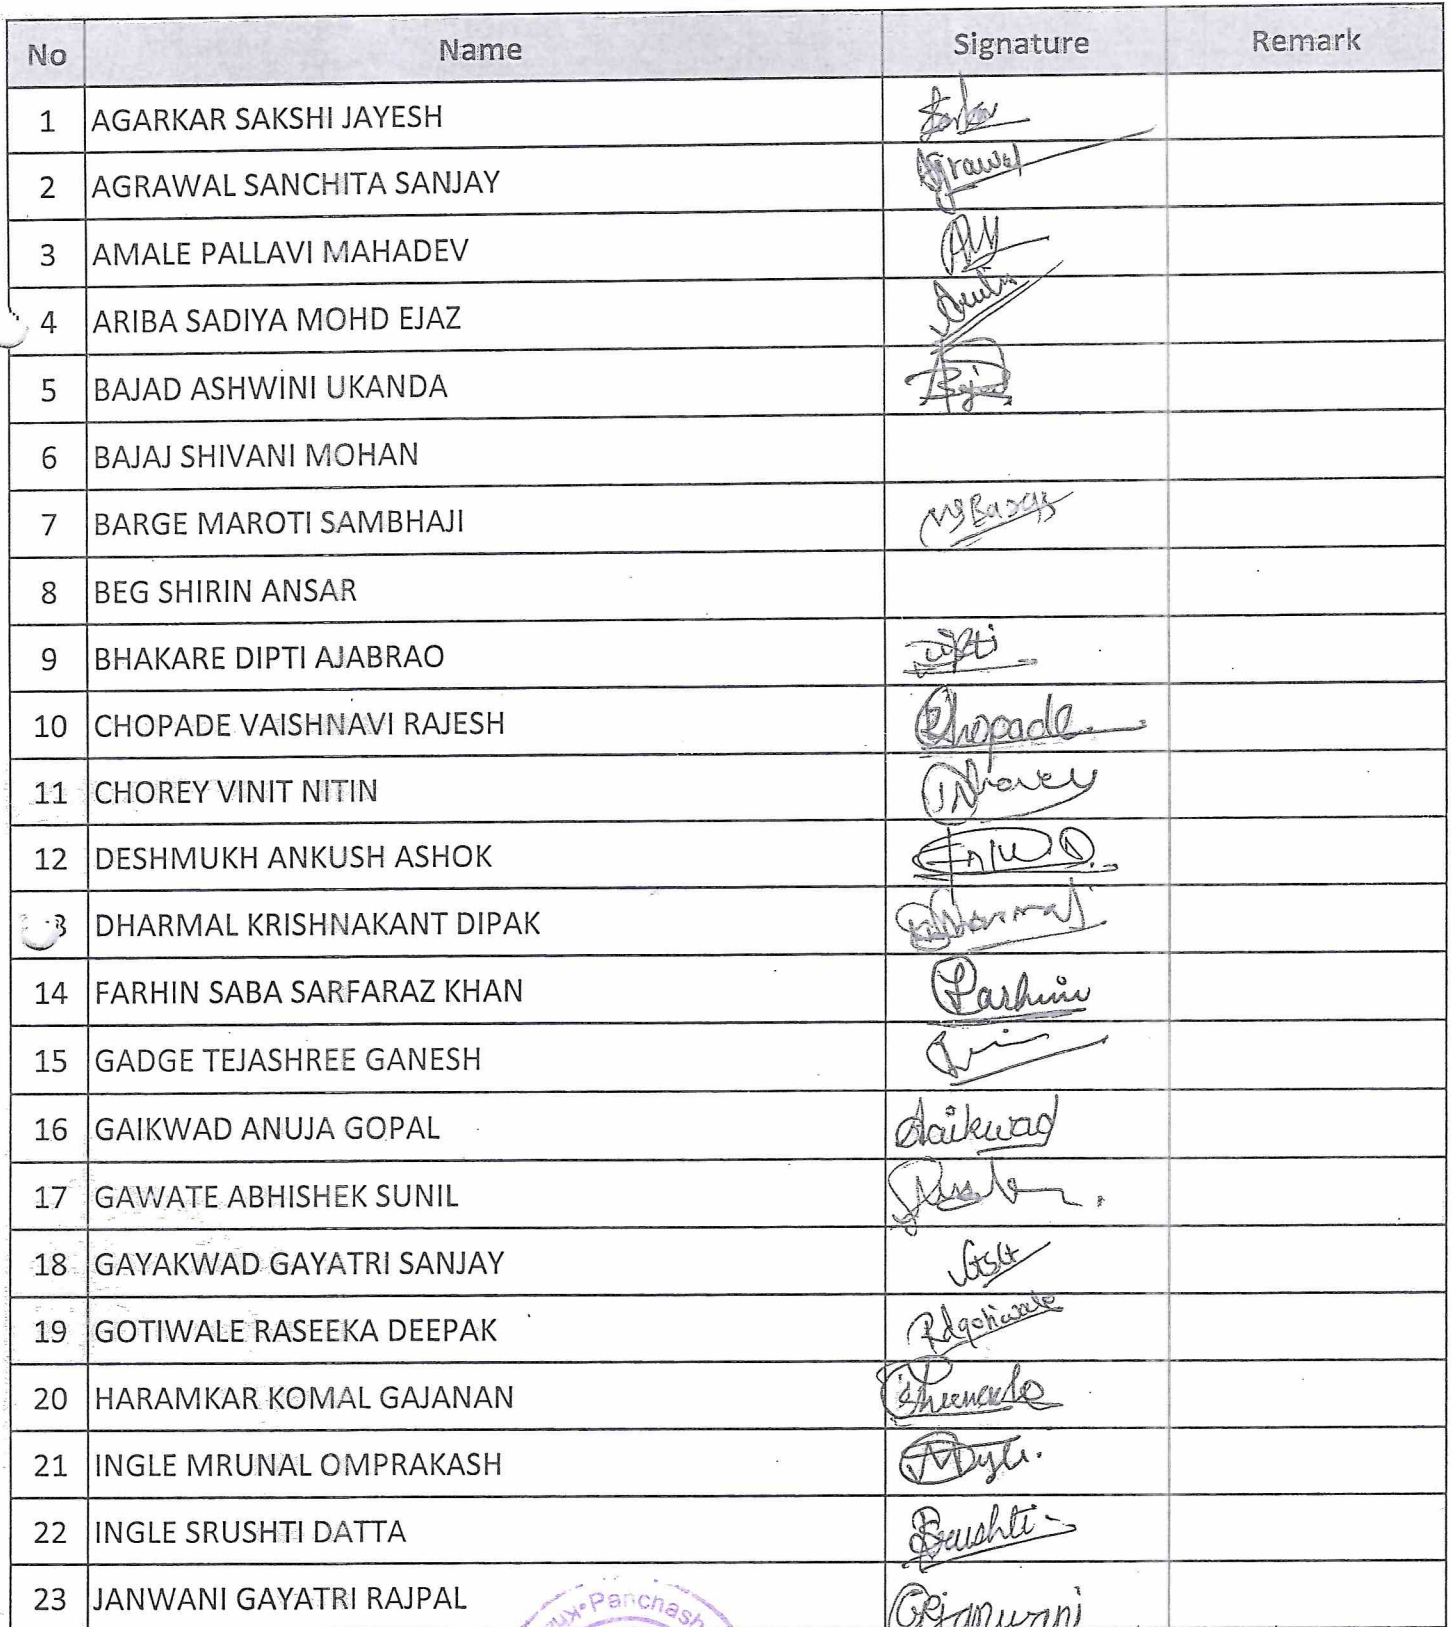 No Name Signature Remark
1 AGARKAR SAKSHI JAYESH
2 AGRAWAL SANCHITA SANJAY Agrawal
3 AMALE PALLAVI MAHADEV
4 ARIBA SADIYA MOHD EJAZ
5 BAJAD ASHWINI UKANDA
6 BAJAJ SHIVANI MOHAN
7 BARGE MAROTI SAMBHAJI
8 BEG SHIRIN ANSAR
9 BHAKARE DIPTI AJABRAO Dipti
10 CHOPADE VAISHNAVI RAJESH Chopade
11 CHOREY VINIT NITIN
12 DESHMUKH ANKUSH ASHOK
3 DHARMAL KRISHNAKANT DIPAK
14 FARHIN SABA SARFARAZ KHAN
15 GADGE TEJASHREE GANESH
16 GAIKWAD ANUJA GOPAL Gaikwad
17 GAWATE ABHISHEK SUNIL
18 GAYAKWAD GAYATRI SANJAY
19 GOTIWALE RASEEKA DEEPAK Rdgotiwale
20 HARAMKAR KOMAL GAJANAN
21 INGLE MRUNAL OMPRAKASH
22 INGLE SRUSHTI DATTA Srushti
23 JANWANI GAYATRI RAJPAL GRjanwani
Panchash